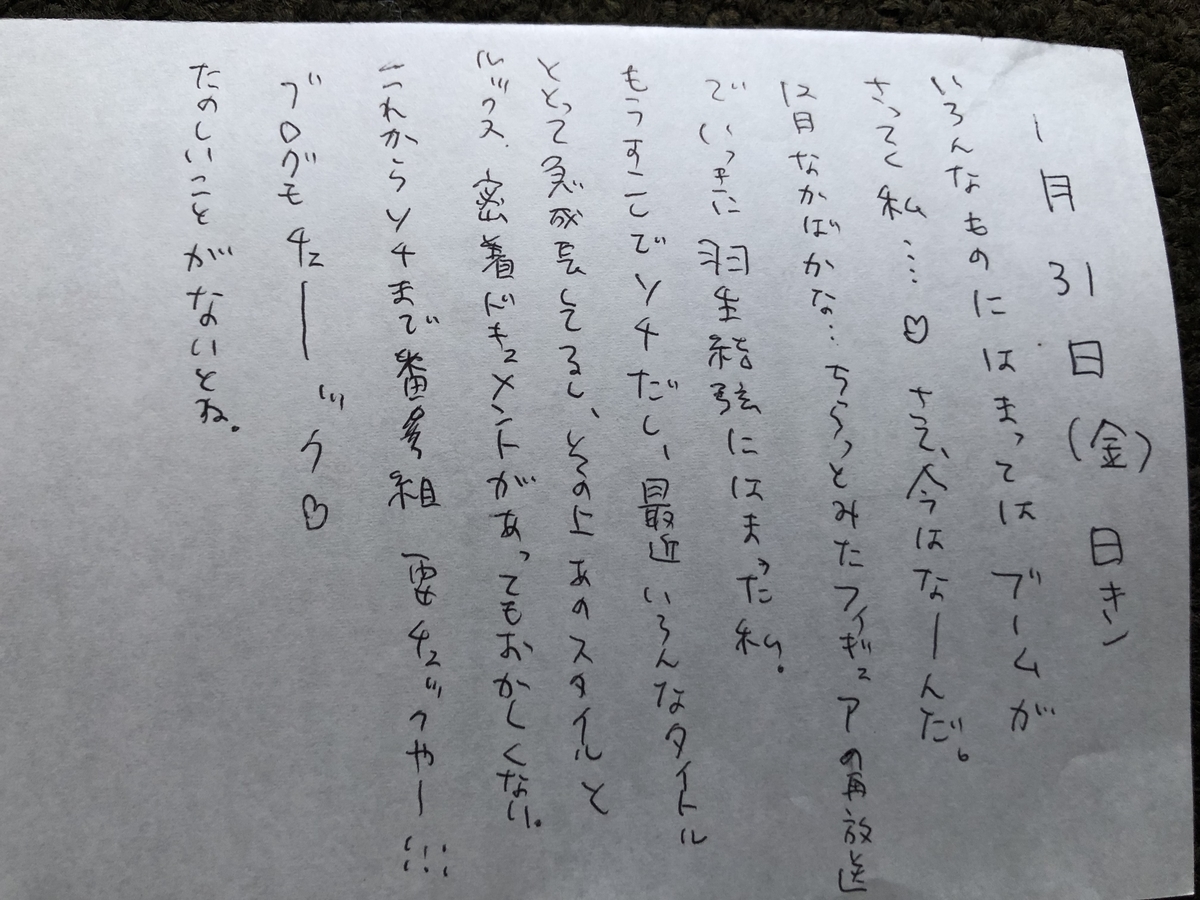 1月31日(金) 日キン
いろんなものにはまってはブームが
さってく私…♡ さて、今はなーんだ。
12月なかばかな…ちらっとみたフィギュアの再放送
でいっきに羽生結弦にはまった私。
もうすこしでソチだし、最近いろんなタイトル
ととって急成長してるし、その上あのスタイルと
ルックス。密着ドキュメントがあってもおかしくない。
これからソチまで番組 要チェックやー!!!
ブログもチェーック♡
たのしいことがないとね。